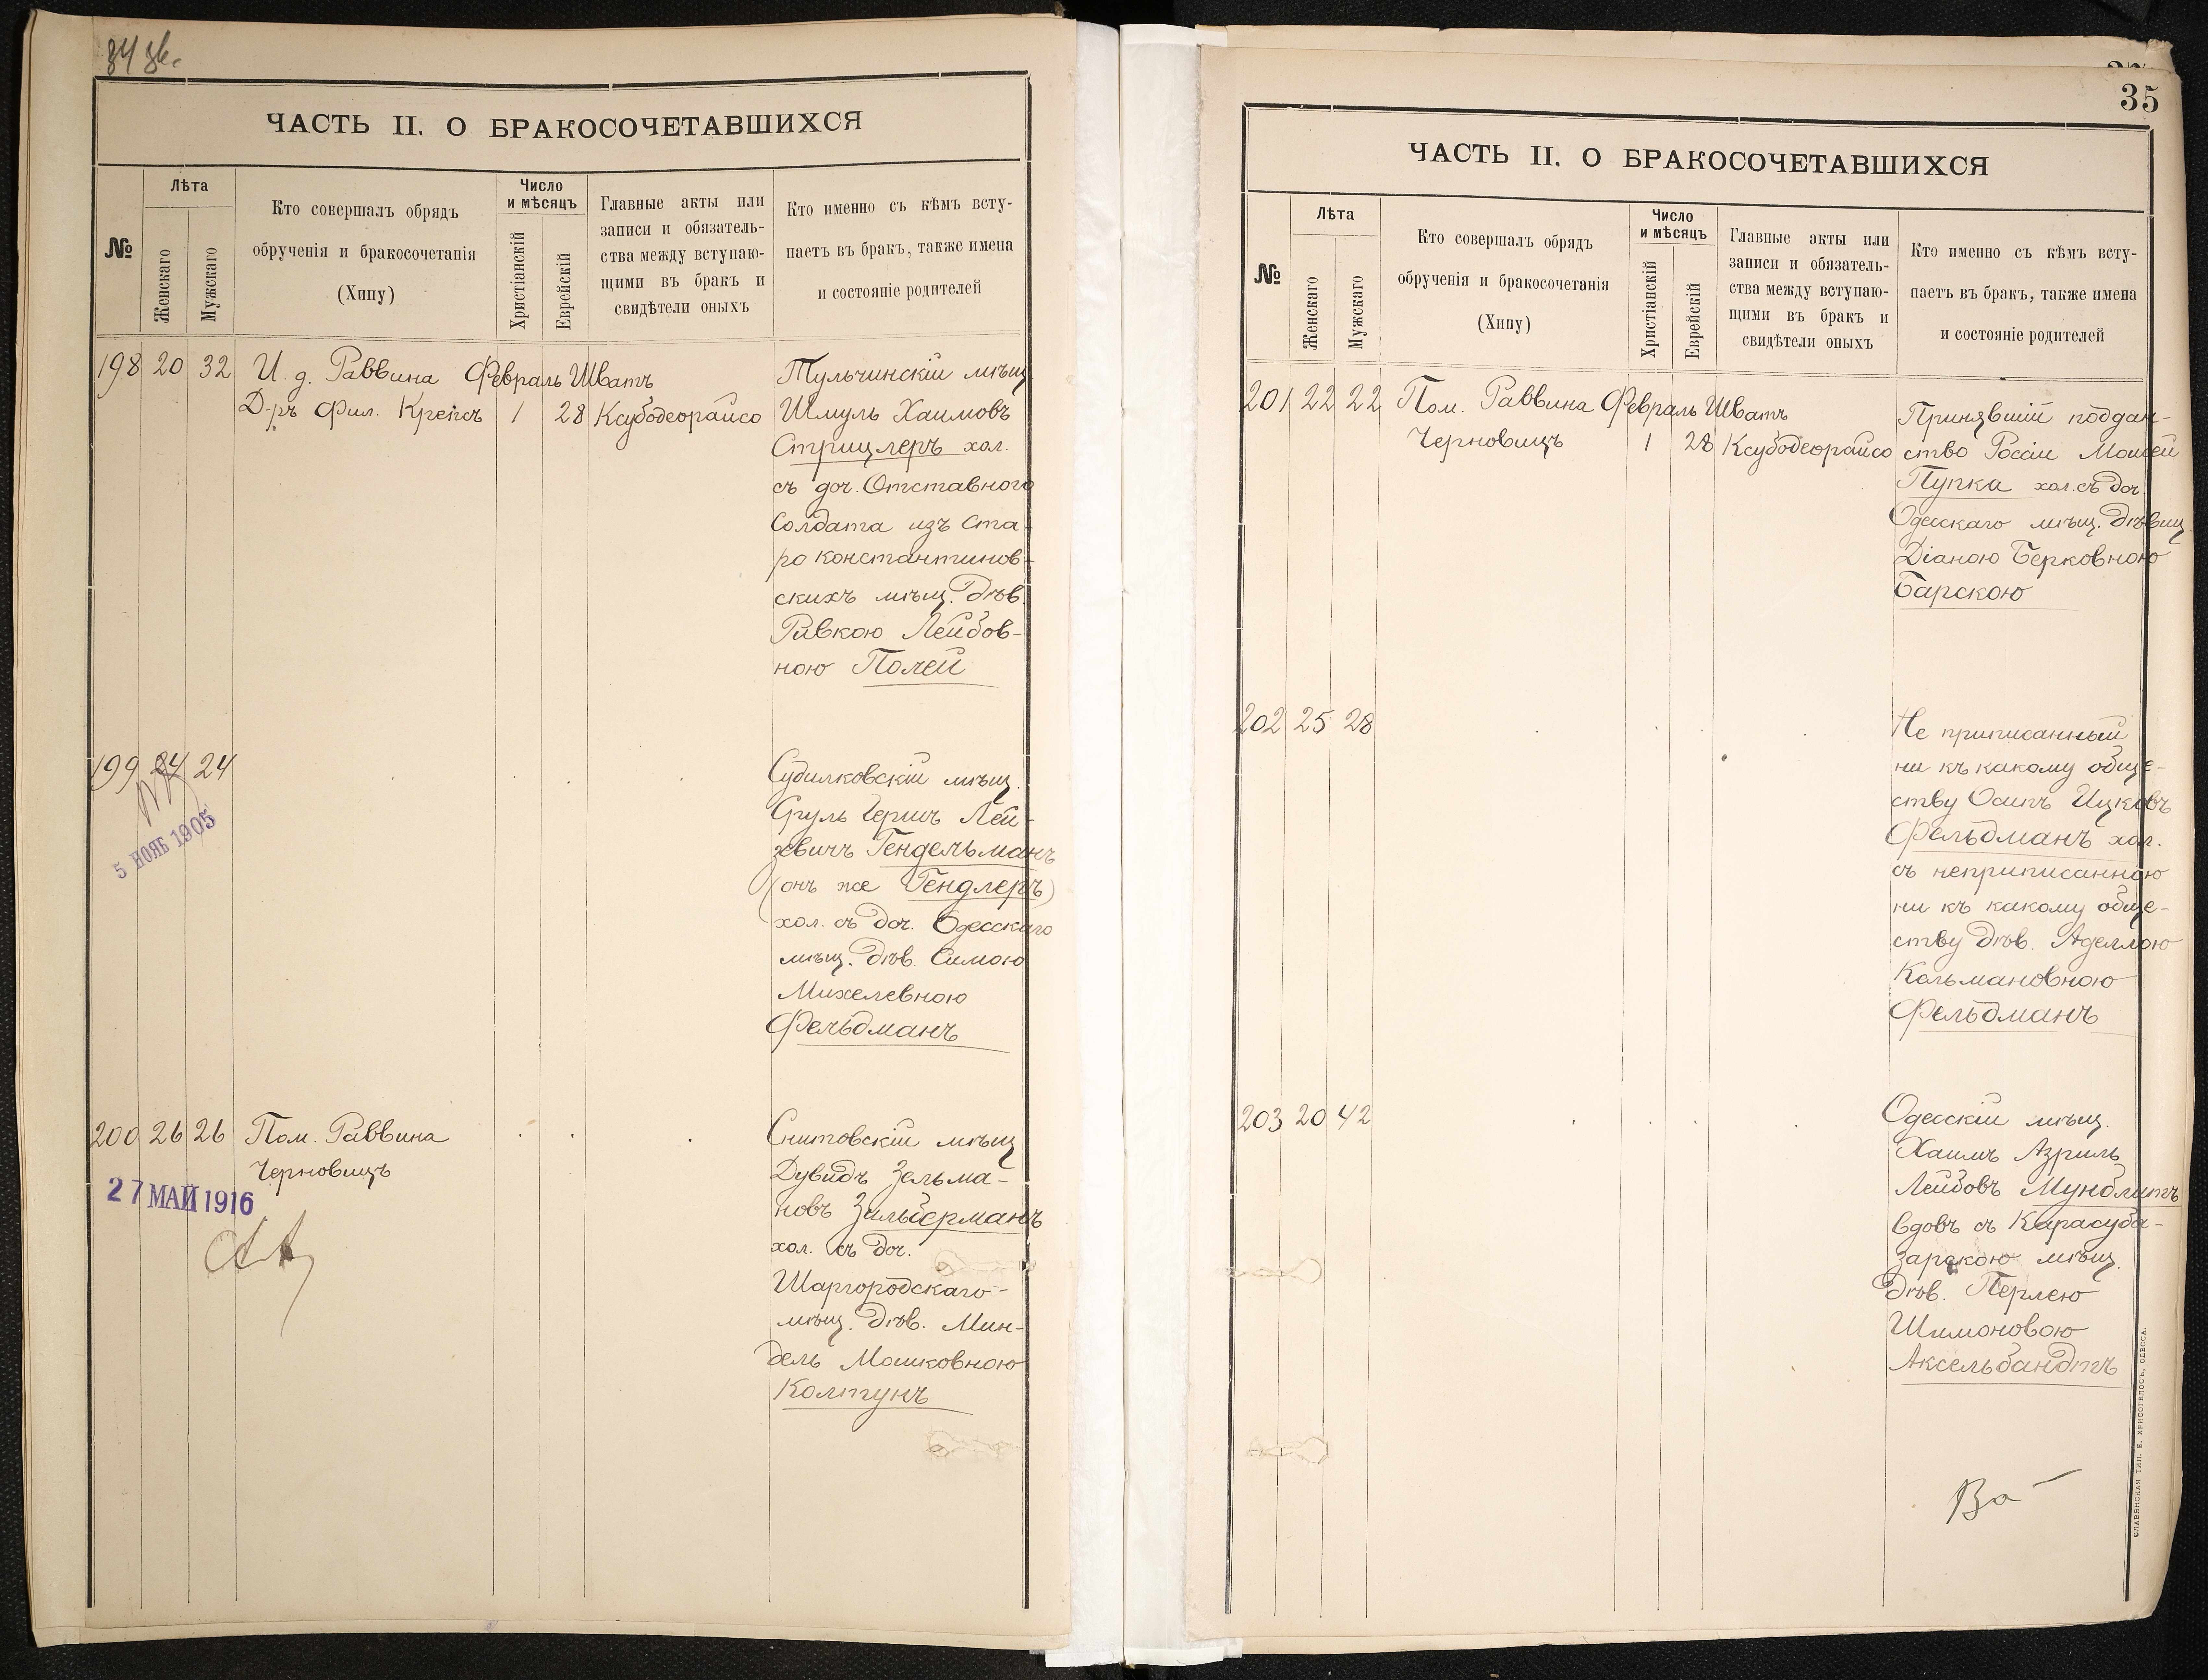 ЧАСТЬ II. О БРАКОСОЧЕТАВШИХСЯ
№
Лѣта
Женскаго
Мужскаго
Кто совершалъ обрядъ
обрученія и бракосочетанія
(Хипу)
Число
и мѣсяцъ
Христіанскій
Еврейскій
Главные акты или
записи и обязатель-
ства между вступаю-
щими въ бракъ и
свидѣтели оныхъ
Кто именно съ кѣмъ всту-
паетъ въ бракъ, также имена
и состояніе родителей
198 20 32 И. д. Раввина Февраль Шватъ
Д-ръ Фил. Крепсъ 1 28 Ксубодеорайсо
Тульчинскій мѣщ.
Шмуль Хаимовъ
Стрицлеръ хол.
съ доч. Отставного
Солдата изъ Ста-
роконстантинов-
скихъ мѣщ. Дѣв.
Ривкою Лейбов-
ною Полей
199 24 24
5 НОЯБ 1905
Судилковскій мѣщ.
Сруль Гершъ Лей-
зевичъ Гендельманъ
(онъ же Гендлеръ)
хол. съ доч. Одесскаго
мѣщ. Дѣв. Симою
Михелевною
Фельдманъ
200 26 26 Пом. Раввина
Черновицъ
27 МАЙ 1916
Снитовскій мѣщ.
Дувидъ Зельма-
новъ Зильберманъ
хол. съ доч.
Шаргородскаго
мѣщ. Дѣв. Мин-
дель Мошковною
Колтунъ
35
ЧАСТЬ II. О БРАКОСОЧЕТАВШИХСЯ
№
Лѣта
Женскаго
Мужскаго
Кто совершалъ обрядъ
обрученія и бракосочетанія
(Хипу)
Число
и мѣсяцъ
Христіанскій
Еврейскій
Главные акты или
записи и обязатель-
ства между вступаю-
щими въ бракъ и
свидѣтели оныхъ
Кто именно съ кѣмъ всту-
паетъ въ бракъ, также имена
и состояніе родителей
201 22 22 Пом. Раввина Февраль Шватъ
Черновицъ 1 28 Ксубодеорайсо
Принявшій поддан-
ство Россіи Моисей
Пупка хол. съ доч.
Одесскаго мѣщ. Дѣвиц.
Діаною Берковною
Барскою
202 25 28
Не приписанный
ни къ какому обще-
ству Осипъ Ицковъ
Фельдманъ хол.
съ неприписанною
ни къ какому обще-
ству Дѣв. Аделлою
Кальмановною
Фельдманъ
203 20 42
Одесскій мѣщ.
Хаимъ Азриль
Лейбовъ Мунблитъ
вдовъ съ Карасуба-
зарскою мѣщ.
Дѣв. Перлею
Шимоновою
Аксельбандтъ
СЛАВЯНСКАЯ ТИП. Е. ХРИСОГЕЛОСЪ, ОДЕССА.